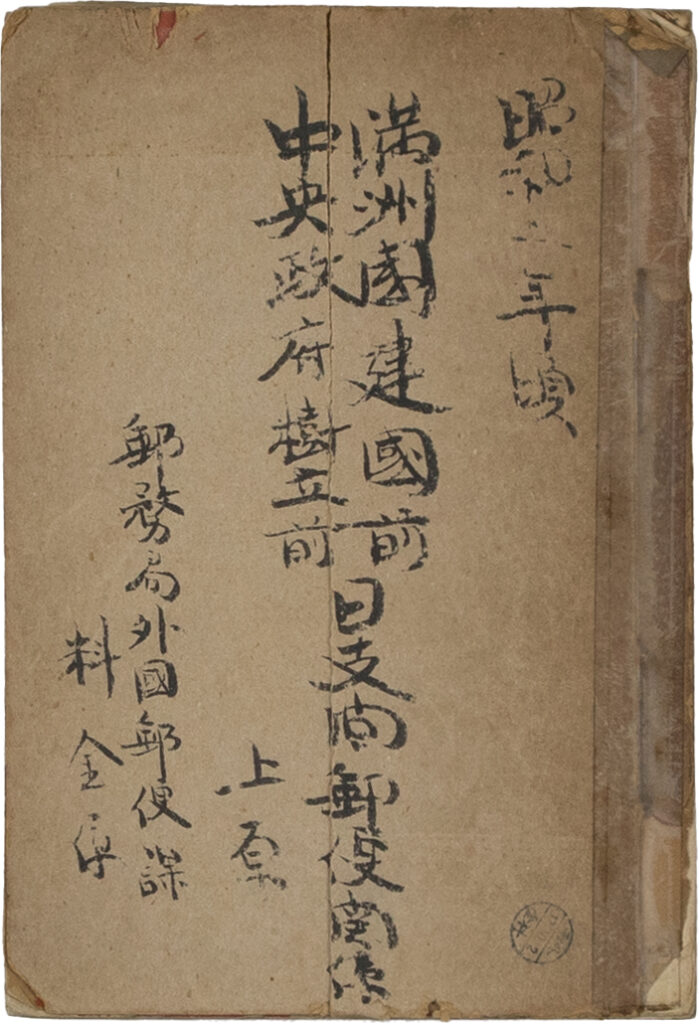 昭和 年頃
満洲國建國前
中央政府樹立前
日支间郵便関係
上原
郵務局外國郵便課
料金